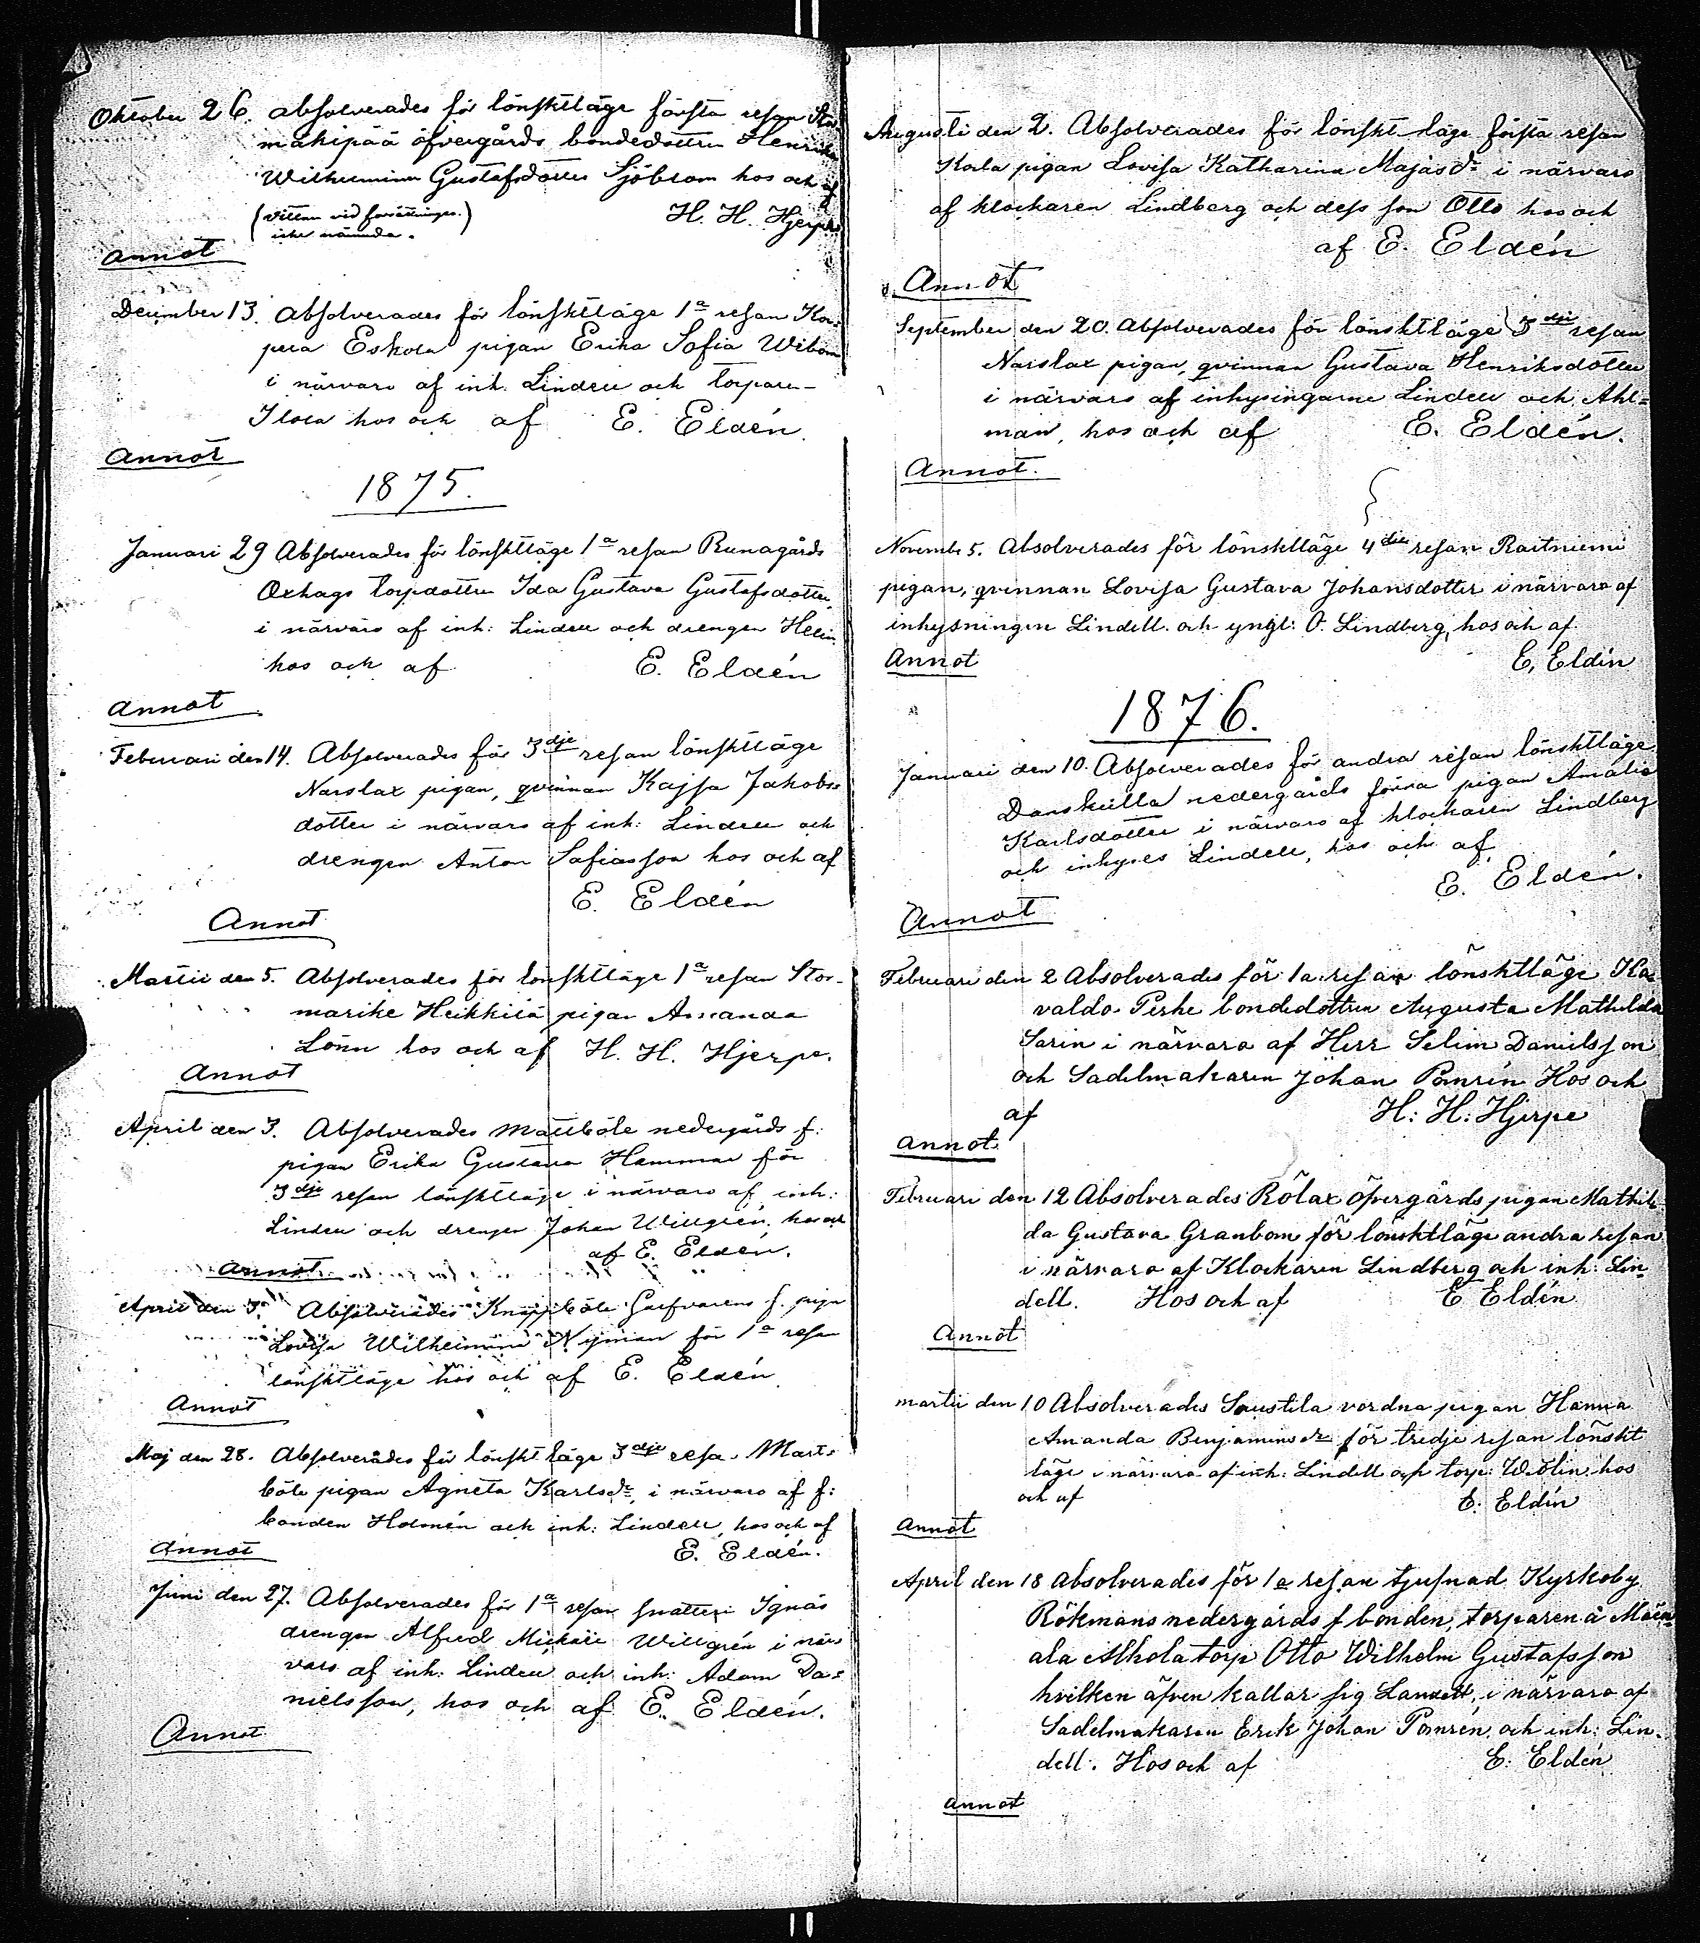 Oktober 26. absolverades för lönsktläge första resan Stor
mäkipää öfvergårds bondedottren Henrika
Wilhelmina Gustafsdotter Sjöblom hos och af
(vittnen vid förrättningen H. H. Hjerpe
icke nämnda.)
Annot
December 13. Absolverades för lönsktläge 1a resan Kor=
pela Eskola pigan Erika Sofia Wibom
i närvaro af inh. Lindell och torparen
Ilola hos och af E. Eldén.
Annot
1875.
Januari 29 Absolverades för lönsktläge 1a resan Runagårds
Oxhags torpdottren Ida Gustava Gustafsdotter,
i närvaro af inh: Lindell och drengen Helin
hos och af E. Eldén
Annot
Februari den 14. Absolverades för 3dje resan lönsktläge
Narslax pigan, qvinnan Kajsa Jakobs=
dotter i närvaro af inh: Lindell och
drengen Anton Safiasson hos och af
E. Eldén
Annot
Martii den 5. Absolverades för lönsktläge 1a resan Stor-
marike Heikkilä pigan Amanda
Lönn hos och af H. H. Hjerpe.
Annot
April den 3. Absolverades Mattböle nedergårds f:
pigan Erika Gustava Hammar för
3dje resan lönsktläge i närvaro af inh:
Lindell och drengen Johan Willgrén, hos och
af E. Eldén.
Annot
April den 3. Absolverades Knäppiböle f. piga
Lovisa Wilhelmina Nyman för 1a resan
lönsktläge hos och af E. Eldén
Annot
Maj den 28. Absolverades för lönskt läge 3dje resa. Mart=
böle pigan Agneta Karlsdr, i närvaro af f:
bonden Holmén och inh: Lindell, hos och af
E. Eldén.
Annot
Juni den 27. Absolverades för 1a resan snatteri Ignäs
drengen Alfred Mickael Willgrén i när=
varo af inh: Lindell och inh: Adam Da=
nielsson, hos och af E. Eldén.
Annot
Augusti den 2. Absolverades för lönskt läge första resan
Korla pigan Lovisa Katharina Majasdr i närvaro
af klockaren Lindberg och dess son Otto hos och
af E. Eldén
Annot
September den 20. Absolverades för lönsktläge 3dje resan
Narslax pigan, qvinnan Gustava Henriksdotter
i närvaro af inhysingarne Lindell och Ahl=
man, hos och af E. Eldén.
Annot.
Novembr 5. Absolverades för lönsktläge 4die resan Raitniemi
pigan, qvinnan Lovisa Gustava Johansdotter i närvaro af
inhysningen Lindell och yngl: O. Lindberg, hos och af
Annot E, Eldén
1876.
Januari den 10. Absolverades för andra resan lönsktläge
Danskulla nedergårds förra pigan Amalia
Karlsdotter i närvaro af klockaren Lindberg
och inhyses Lindell, hos och af
E. Eldén.
Annot
Februari den 2 Absolverades för 1a resan lönsktläge Ka
valdo Perhe bondedottren Augusta Mathilda
Sarin i närvaro af Herr Selim Danielsson
och Sadelmakaren Johan Pomrén Hos och
af H: H: Hjerpe
Annot
Februari den 12 Absolverades Rölax öfvergårds pigan Mathil-
da Gustava Granbom för lönsktläge andra resan
i närvaro af Klockaren Lindberg och inh: Lin
dell. Hos och af E Eldén
Annot
martii den 10 Absolverades Saustila vordna pigan Hanna
Amanda Benjaminsdr för tredje resan lönskt
läge i närvaro af inh: Lindell och torp: Wolin hos
och af E. Eldén
Annot
April den 18 Absolverades för 1a resan tjufnad Kyrkoby
Rökmans nedergårds f bonden, torparen å Mäen
ala Alhola torp Otto Wilhelm Gustafsson
hvilken äfven kallar sig Landett, i närvaro af
Sadelmakaren Erik Johan Pomrén och inh: Lin-
dell. Hos och af E. Eldén
Annot